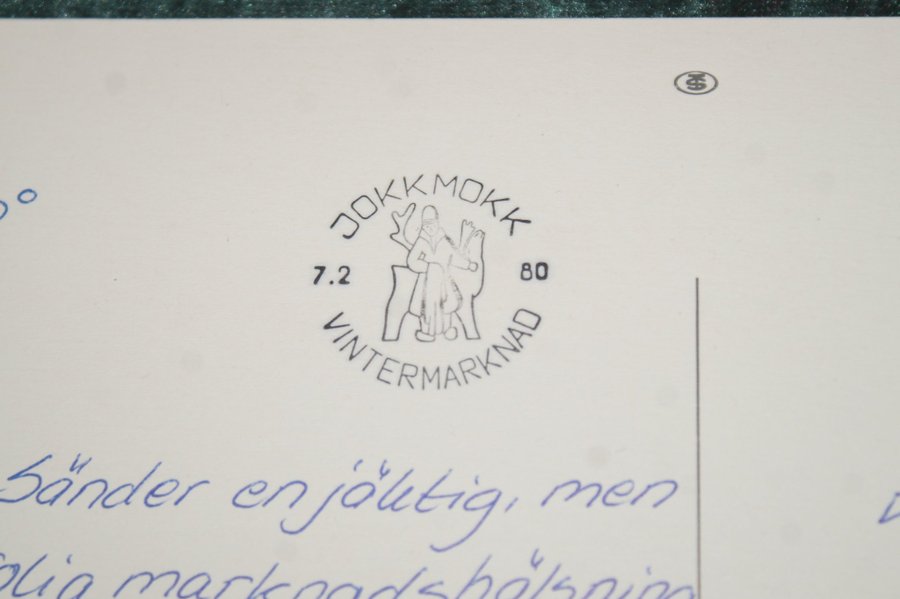 JOKKMOKK
7.2 80
VINTERMARKNAD
Sänder en jäktig, men
marknadshälsning